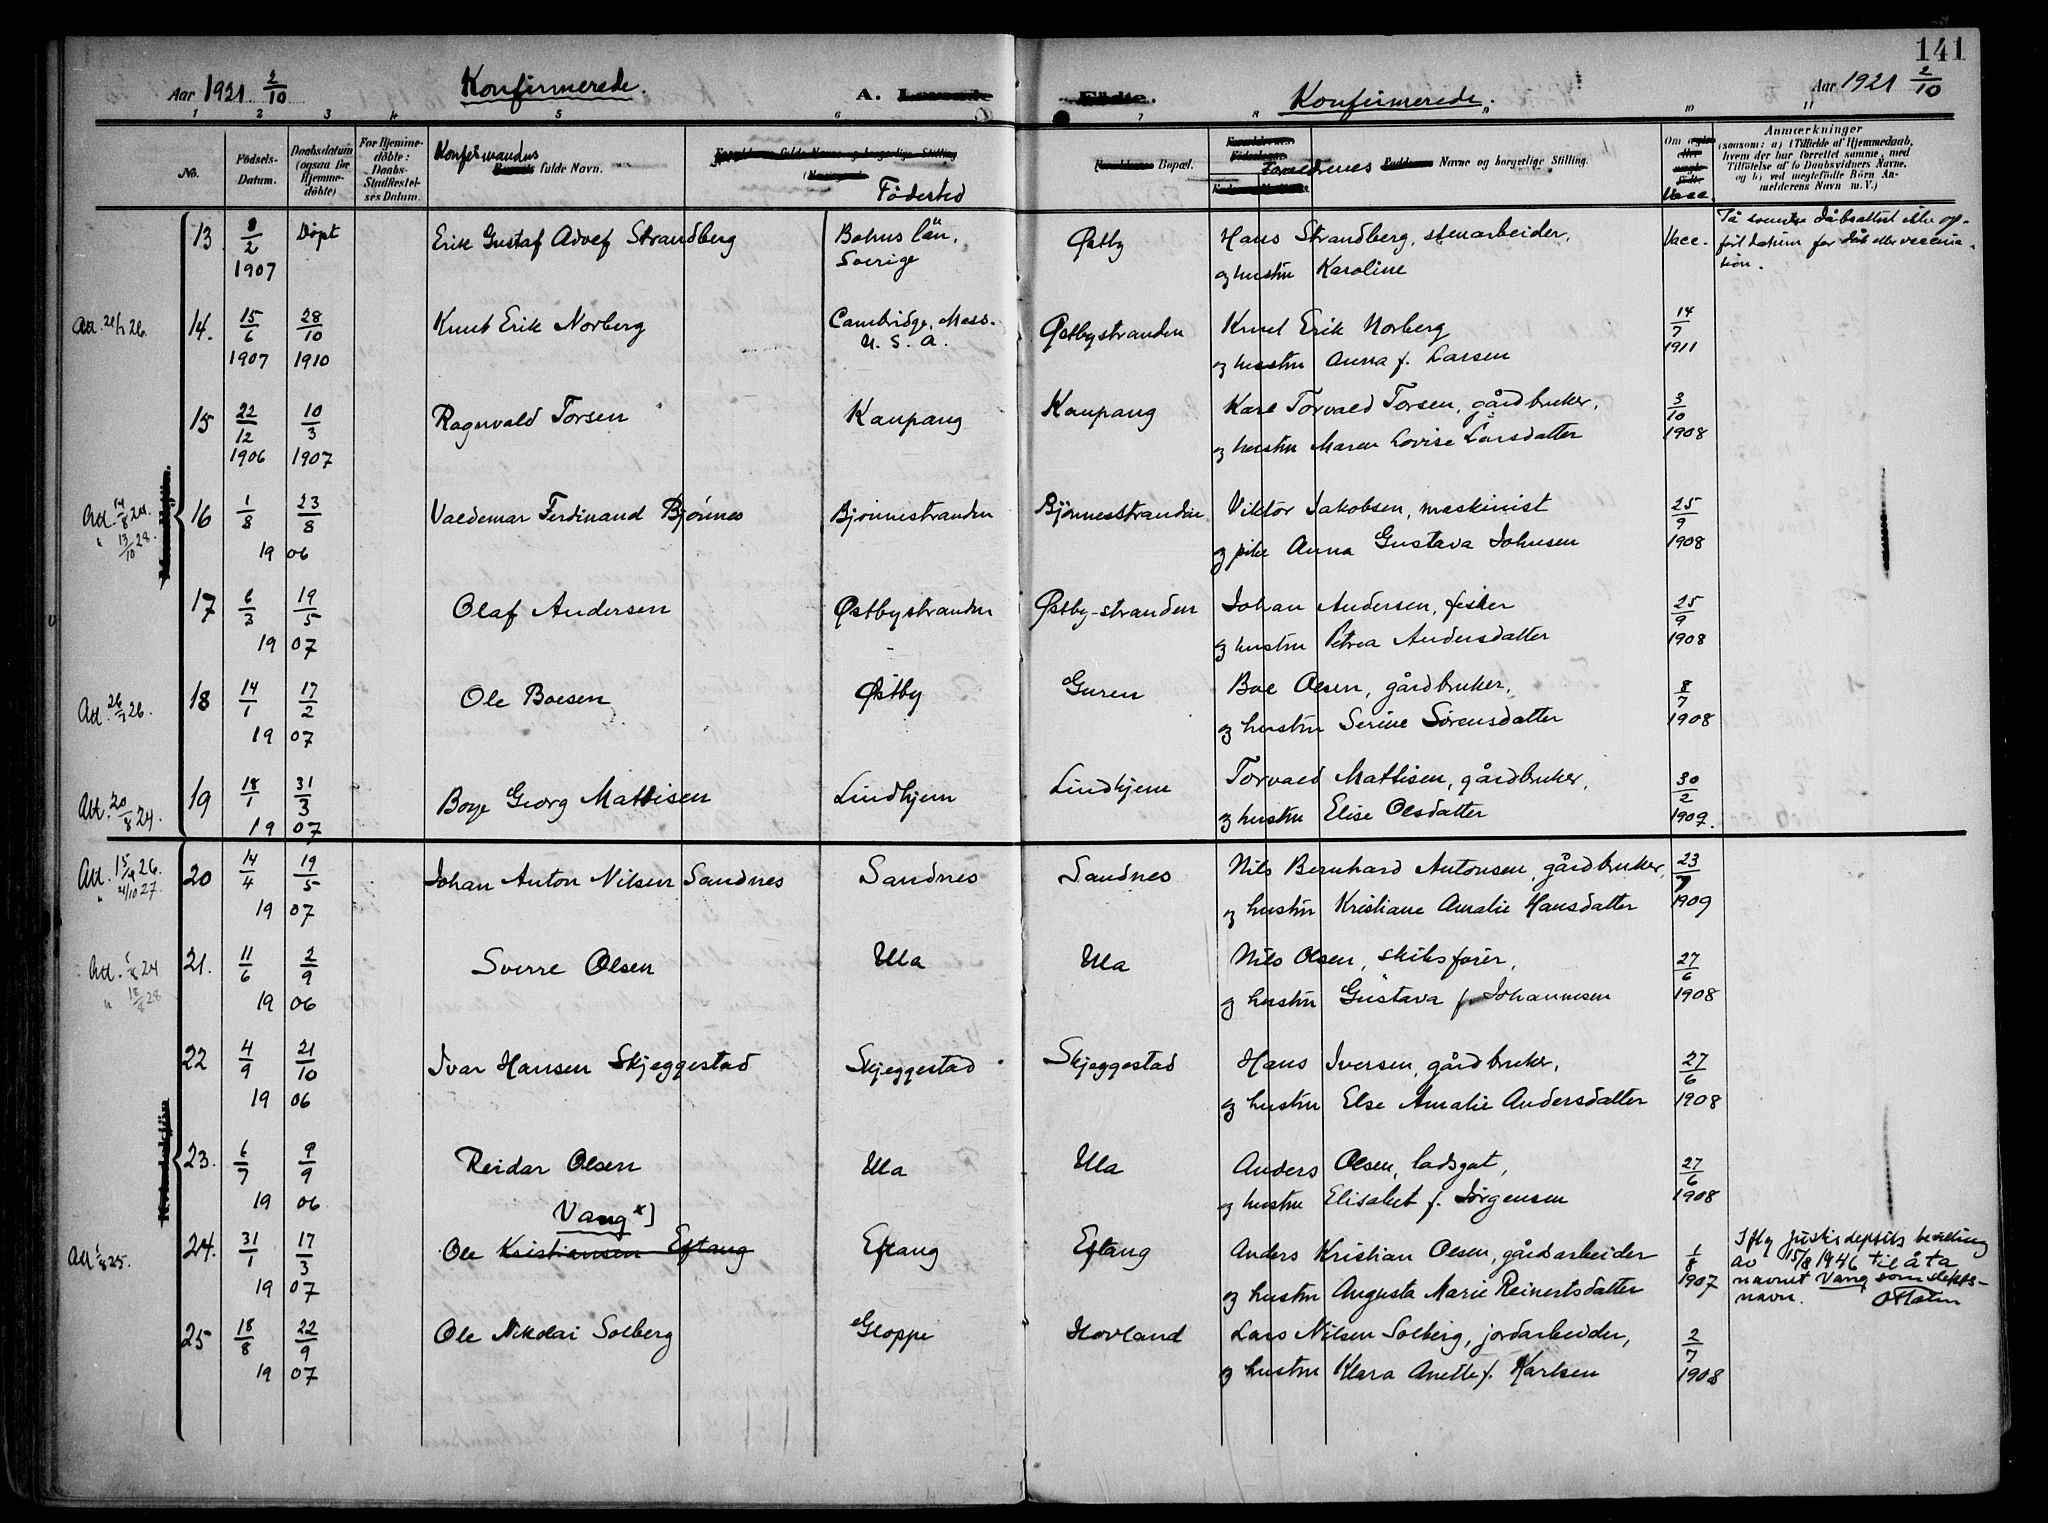 141
Aar 1921 2/10 Konfirmerede. A. Levende Födte. Konfirmerede. Aar 1921 2/10
1 2 3 4 5 6 7 8 9 10 11
No. Födsels-Datum. Daabsdatum (ogsaa for Hjemmedöbte) For Hjemmedöbte: Daabs-Stadfæstelses Datum. Konfirmandens fulde Navn. Födested Bopæl. Foreldrenes Navne og borgerlige Stilling. Vacc. Anmærkninger (saasom: a) i Tilfælde af Hjemmedaab, hvem der har forrettet samme, med Tilföielse af to Daabsvidners Navne, og b) ved uegtefödte Börn Anmelderens Navn m. V.)
13 8/2 1907 Döpt Erik Gustaf Advef Strandberg Bohus län, Sverige Østby Hans Strandberg, stenarbeider, Vacc. På svenske dåbsattest ikke op-
og hustru Karoline ført datum for dåb eller vaccina-
tion.
Att. 21/1 26. 14. 15/6 1907 28/10 1910 Knut Erik Norberg Cambridge, Mass. U. S. A. Østbystranden Knut Erik Norberg 14/7 1911
og hustru Anna f. Larsen
15 22/12 1906 10/3 1907 Ragnvald Torsen Kaupang Kaupang Karl Torvald Torsen, gårdbruker, 3/10 1908
og hustru Maren Lovise Larsdatter
Att. 14/8 24. " 13/10 28. 16 1/8 23/8 1906 Valdemar Ferdinand Bjønnes Bjönnestranden Bjönnesstranden Viktor Jakobsen, maskinist 25/9 1908
og pike Anna Gustava Johnsen
17 6/3 19/5 1907 Olaf Andersen Østbystranden Østby-stranden Johan Andersen, fisker 25/9 1908
og hustru Petrea Andersdatter
Att. 26/7 26. 18 14/1 17/2 1907 Ole Boesen Østby Guren Boe Olsen, gårdbruker, 8/7 1908
og hustru Serine Sørensdatter
Att. 20/8 24. 19 18/1 31/3 1907 Boye Georg Mathisen Lindhjem Lindhjem Torvald Mathisen, gårdbruker, 30/2 1909.
og hustru Elise Olsdatter
Att. 15/9 26. " 21/10 27. 20 14/4 19/5 1907 Johan Anton Nilsen Sandnes Sandnes Sandnes Nils Bernhard Antonsen, gårdbruker, 23/7 1909
og hustru Kristiane Amalie Hansdatter
Att. 5/8 24 " 18/8 28 21. 11/6 2/9 1906 Sverre Olsen Ula Ula Nils Olsen, skibsfører, 27/6 1908
og hustru Gustava f. Johannesen
22 4/9 21/10 1906 Ivar Hansen Skjeggestad Skjeggestad Skjeggestad Hans Iversen, gårdbruker, 27/6 1908
og hustru Else Amalie Andersdatter
23. 6/7 9/9 1906 Reidar Olsen Ula Ula Anders Olsen, lodsgat, 27/6 1908
og hustru Elisabet f. Jørgensen
Vang *)
Att 1/8 25. 24. 31/1 17/3 1907 Ole Kristiansen Eftang Eftang Eftang Anders Kristian Olsen, gårdsarbeider 1/8 1907 Iflg justisdeptets bevilling
av 15/8 1946 til å ta
og hustru Augusta Marie Reinertsdatter navnet Vang som slekts-
navn.
25 18/8 22/9 1907 Ole Nikolai Solberg Gloppe Hovland Lars Nilsen Solberg, jordarbeider, 2/7 1908
og hustru Klara Anette f. Karlsen